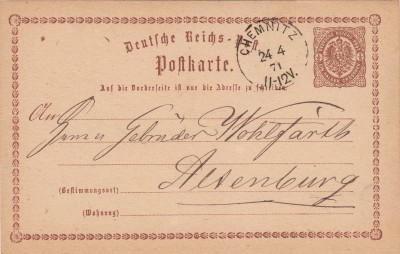 Deutsche Reichs-Post
Postkarte.
CHEMNITZ
24 4
71
11-12V.
Auf die Vorderseite ist nur die Adresse zu schreiben.
An
Herren Gebrüder Wohlfarth
Altenburg
(Bestimmungsort)
(Wohnung)